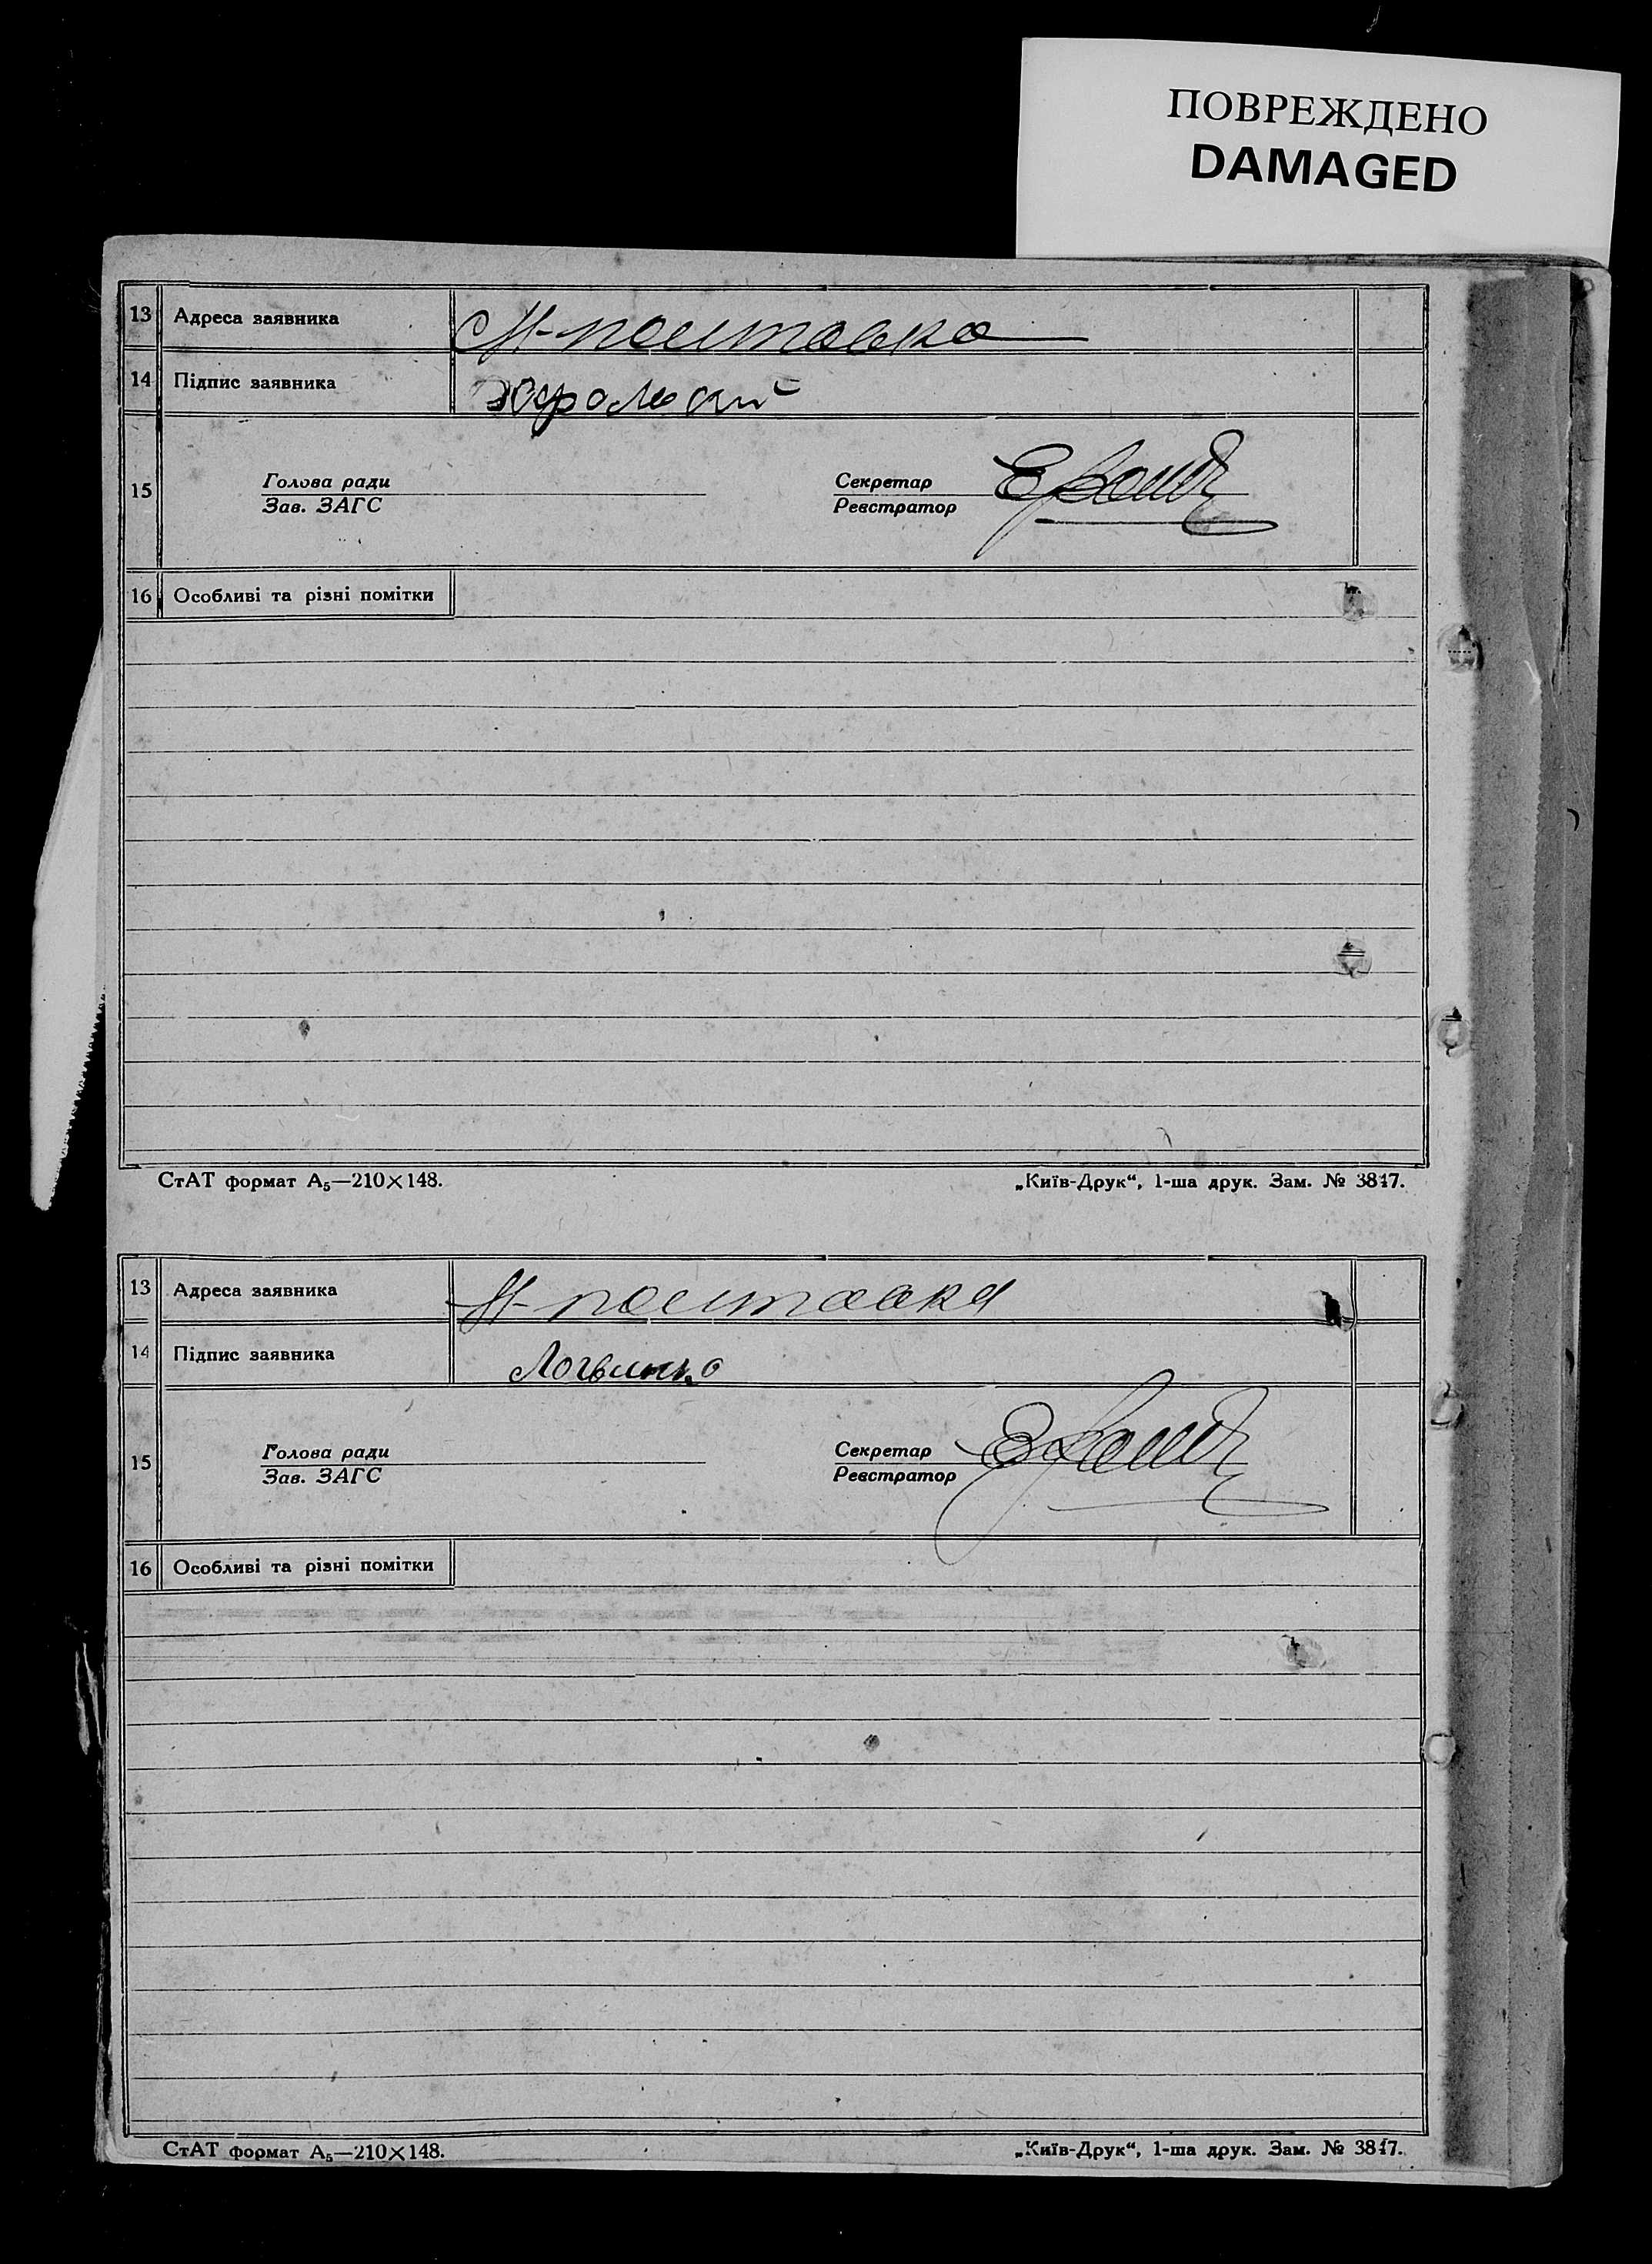 ПОВРЕЖДЕНО
DAMAGED
13 Адреса заявника Н-полтавка
14 Підпис заявника
15 Голова ради Секретар
Зав. ЗАГС Реєстратор
16 Особливі та різні помітки
СтАТ формат А₅—210×148. „Київ-Друк“, 1-ша друк. Зам. № 3817.
13 Адреса заявника Н-полтавка
14 Підпис заявника Логвинко
15 Голова ради Секретар
Зав. ЗАГС Реєстратор
16 Особливі та різні помітки
СтАТ формат А₅—210×148. „Київ-Друк“, 1-ша друк. Зам. № 3817.